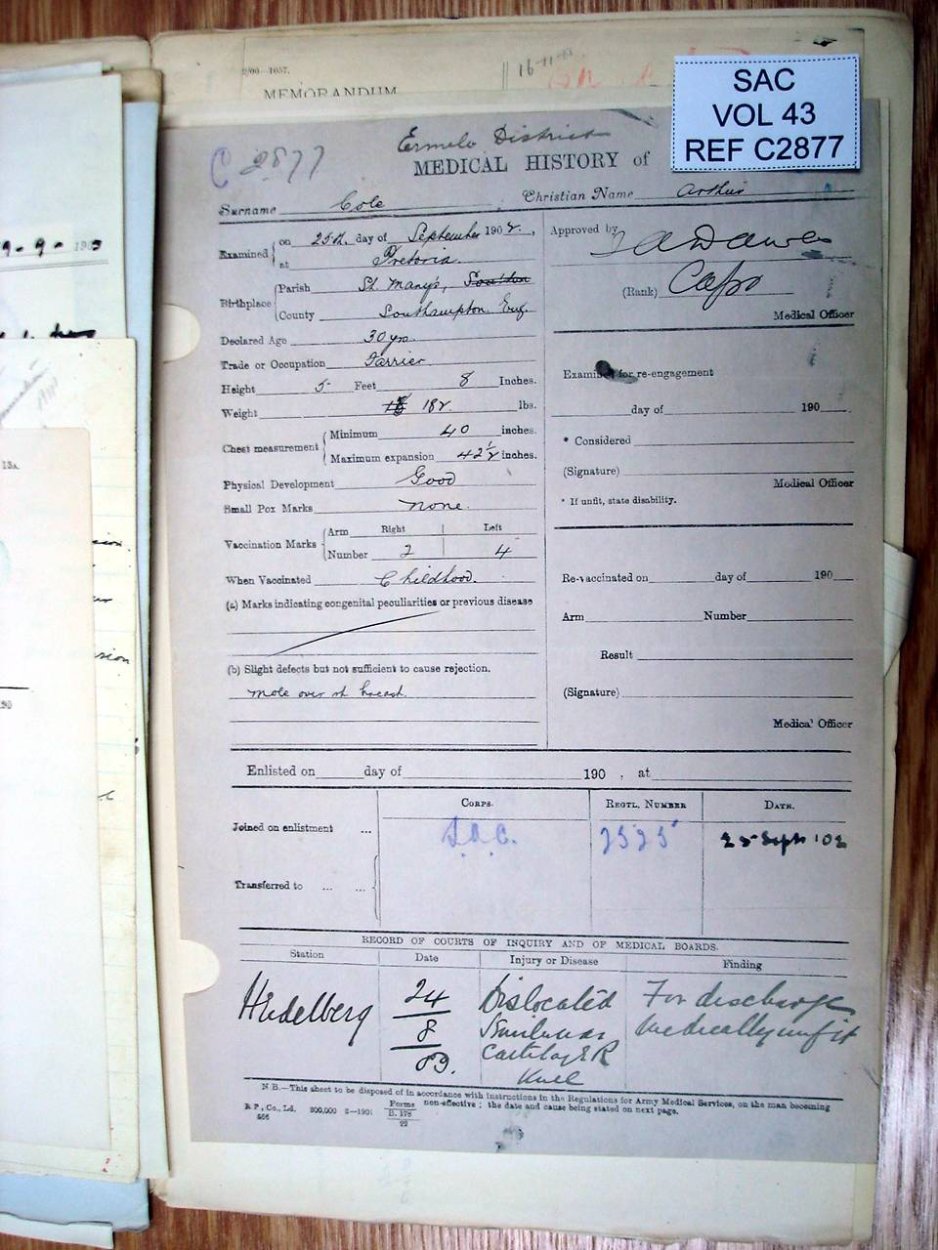 2/00—1057.
16-11-
MEMORANDUM
SAC
VOL 43
REF C2877
C 2877
Ermelo District
MEDICAL HISTORY of
Surname Cole Christian Name Arthur
Examined on 25th day of September 1902,
at Pretoria.
Birthplace Parish St. Mary's, Souton
County Southampton Eng.
Declared Age 30 yrs
Trade or Occupation Farrier
Height 5 Feet 8 Inches.
Weight 182 lbs.
Chest measurement Minimum 40 inches.
Maximum expansion 42½ inches.
Physical Development Good
Small Pox Marks none.
Vaccination Marks Arm Right Left
Number 2 4
When Vaccinated Childhood.
(a) Marks indicating congenital peculiarities or previous disease
(b) Slight defects but not sufficient to cause rejection.
mole over rt breast.
Approved by
(Rank) Capt
Medical Officer
Examined for re-engagement
day of 190
* Considered
(Signature)
Medical Officer
* If unfit, state disability.
Re-vaccinated on day of 190
Arm Number
Result
(Signature)
Medical Officer
Enlisted on day of 190 , at
Corps. Regtl. Number Date.
Joined on enlistment ... S.A.C. 2525 25 Sept '02
Transferred to ... ...
RECORD OF COURTS OF INQUIRY AND OF MEDICAL BOARDS.
Station Date Injury or Disease Finding
Heidelberg 24/8/03. Dislocated For discharge
Semilunar medically unfit
Cartilage R
Knee
N.B.—This sheet to be disposed of in accordance with instructions in the Regulations for Army Medical Services, on the man becoming
non-effective; the date and cause being stated on next page.
B P, Co., Ld. 300,000 2—1901 Forms
B. 178